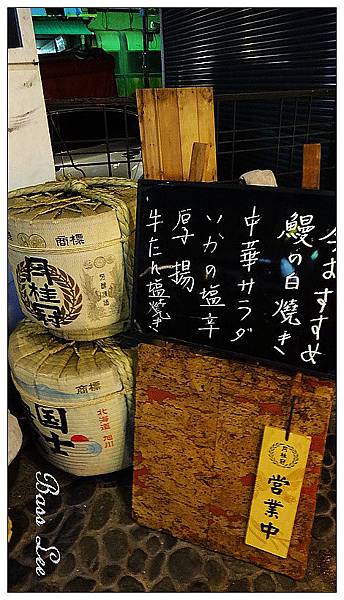 今おすすめ
鰻の白焼き
中華サラダ
いかの塩辛
厚揚
牛たん塩焼き
商標
月桂冠
商標
国士
北海道
旭川
月桂冠
営業中
Bass Lee